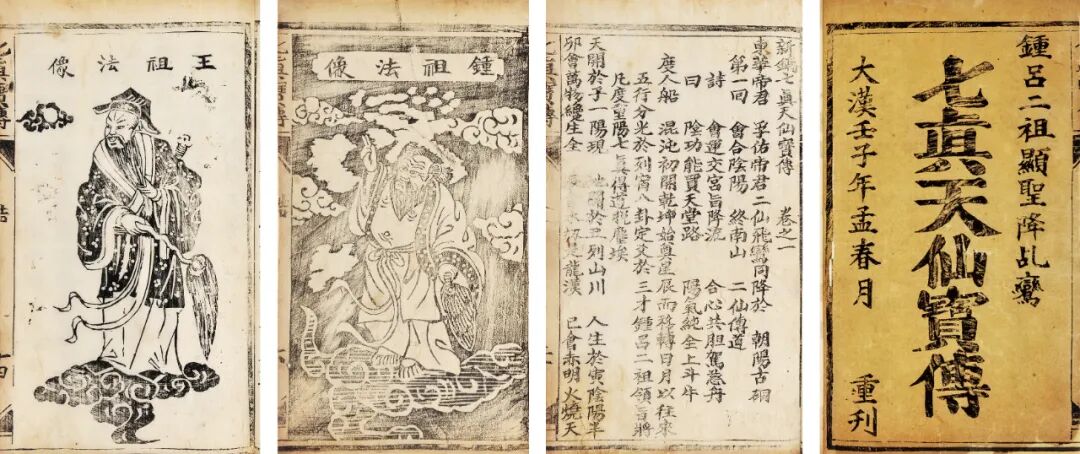 王祖法像
鍾祖法像
新鐫七眞天仙寶傳 卷之一
東華帝君 孚佑帝君二仙飛鸞同降於 朝陽古硐
第一回 會合陰陽 終南山 二仙傳道
詩 會運交宮旨降流 合心共胆駕慈舟
曰 陰功能買天堂路 陽氣純全上斗牛
度人船 混沌初開乾坤始奠星辰而 轉日月以往來
五行分光於列宿八卦定爻於三才鍾呂二祖領旨將
凡度重陽七眞得道超塵埃
天開於子陽現 於丑列山川 人生於寅陰陽半
卯會萬物纔生全 龍漢 巳會赤明火燒天
鍾呂二祖顯聖降乩鸞
七眞天仙寶傳
大漢壬子年孟春月 重刊